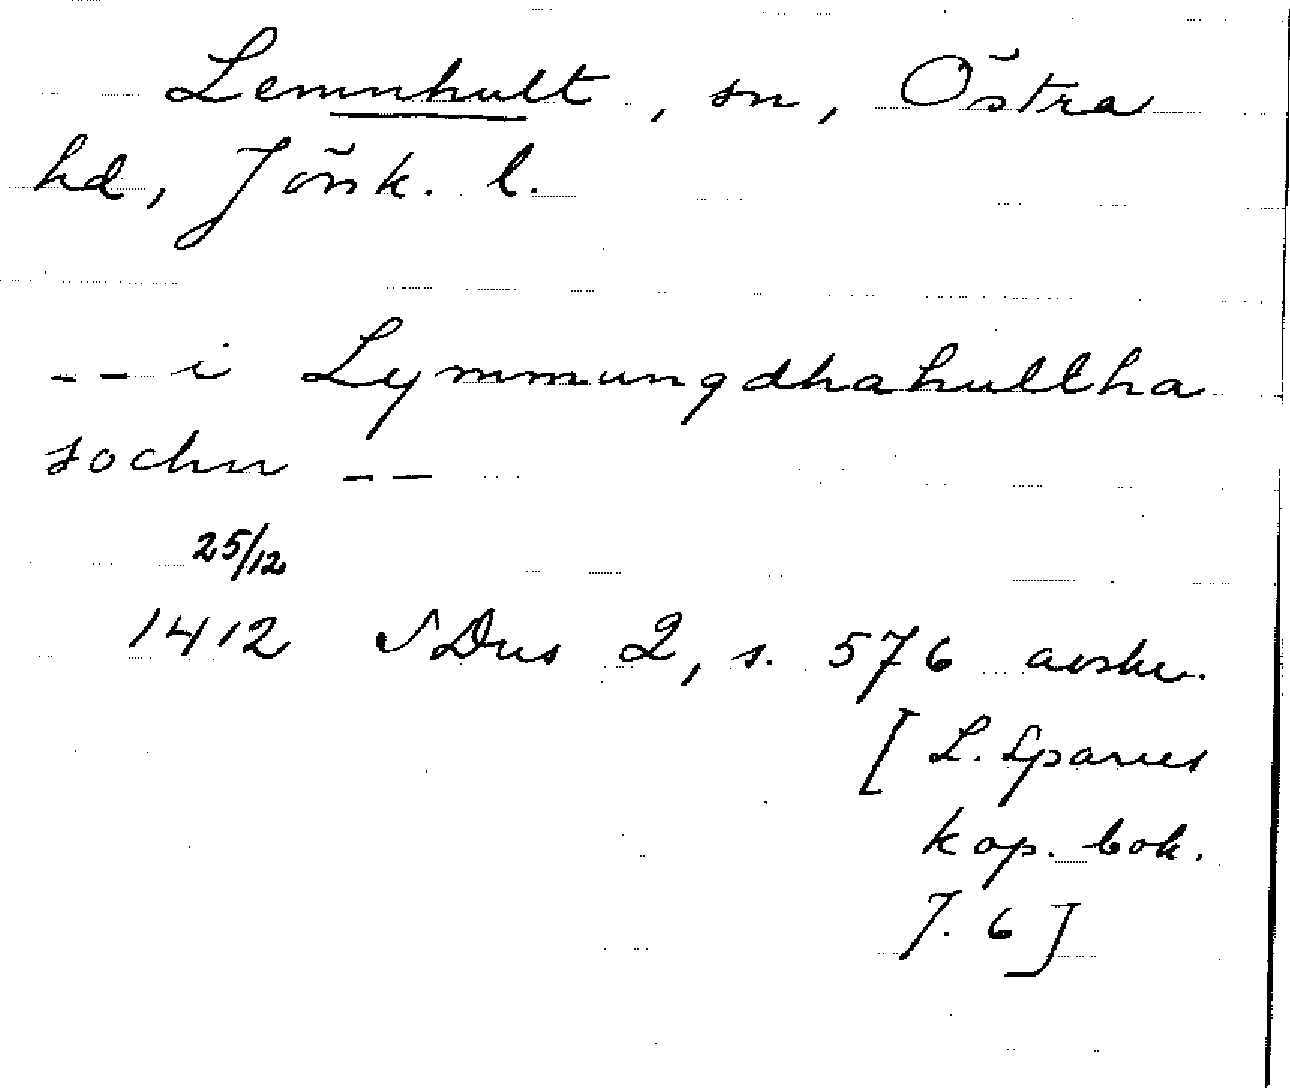 Lemnhult, sn, Östra
hd, Jönk. l.
-- i Lymmungdhahultha
sochn --
25/12
1412 SDns 2, s. 576 avskr.
[L. Sparres
kop. bok.
J. 6]